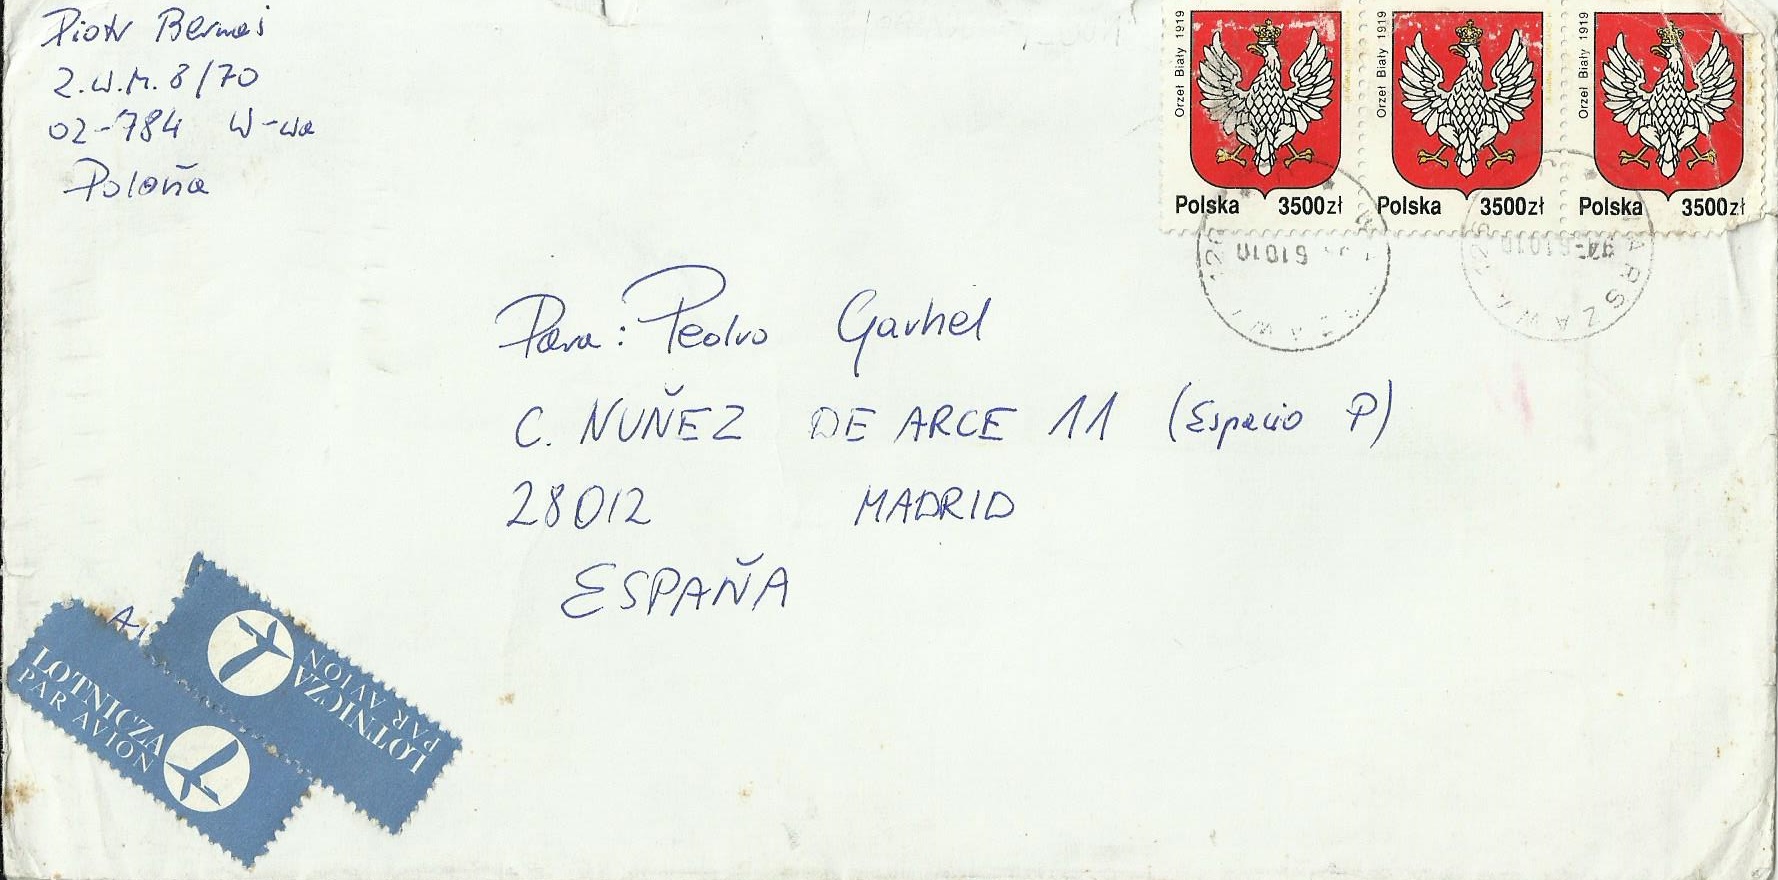 Piotr Bernaś
Z.W.M. 8/70
02-784 W-wa
Poloňa
Orzeł Biały 1919
Polska 3500zł
Orzeł Biały 1919
Polska 3500zł
Orzeł Biały 1919
Polska 3500zł
WARSZAWA
Para: Pedro Garhel
C. NUŇEZ DE ARCE 11 (Espacio P)
28012 MADRID
ESPAŇA
LOTNICZA
PAR AVION
LOTNICZA
PAR AVION